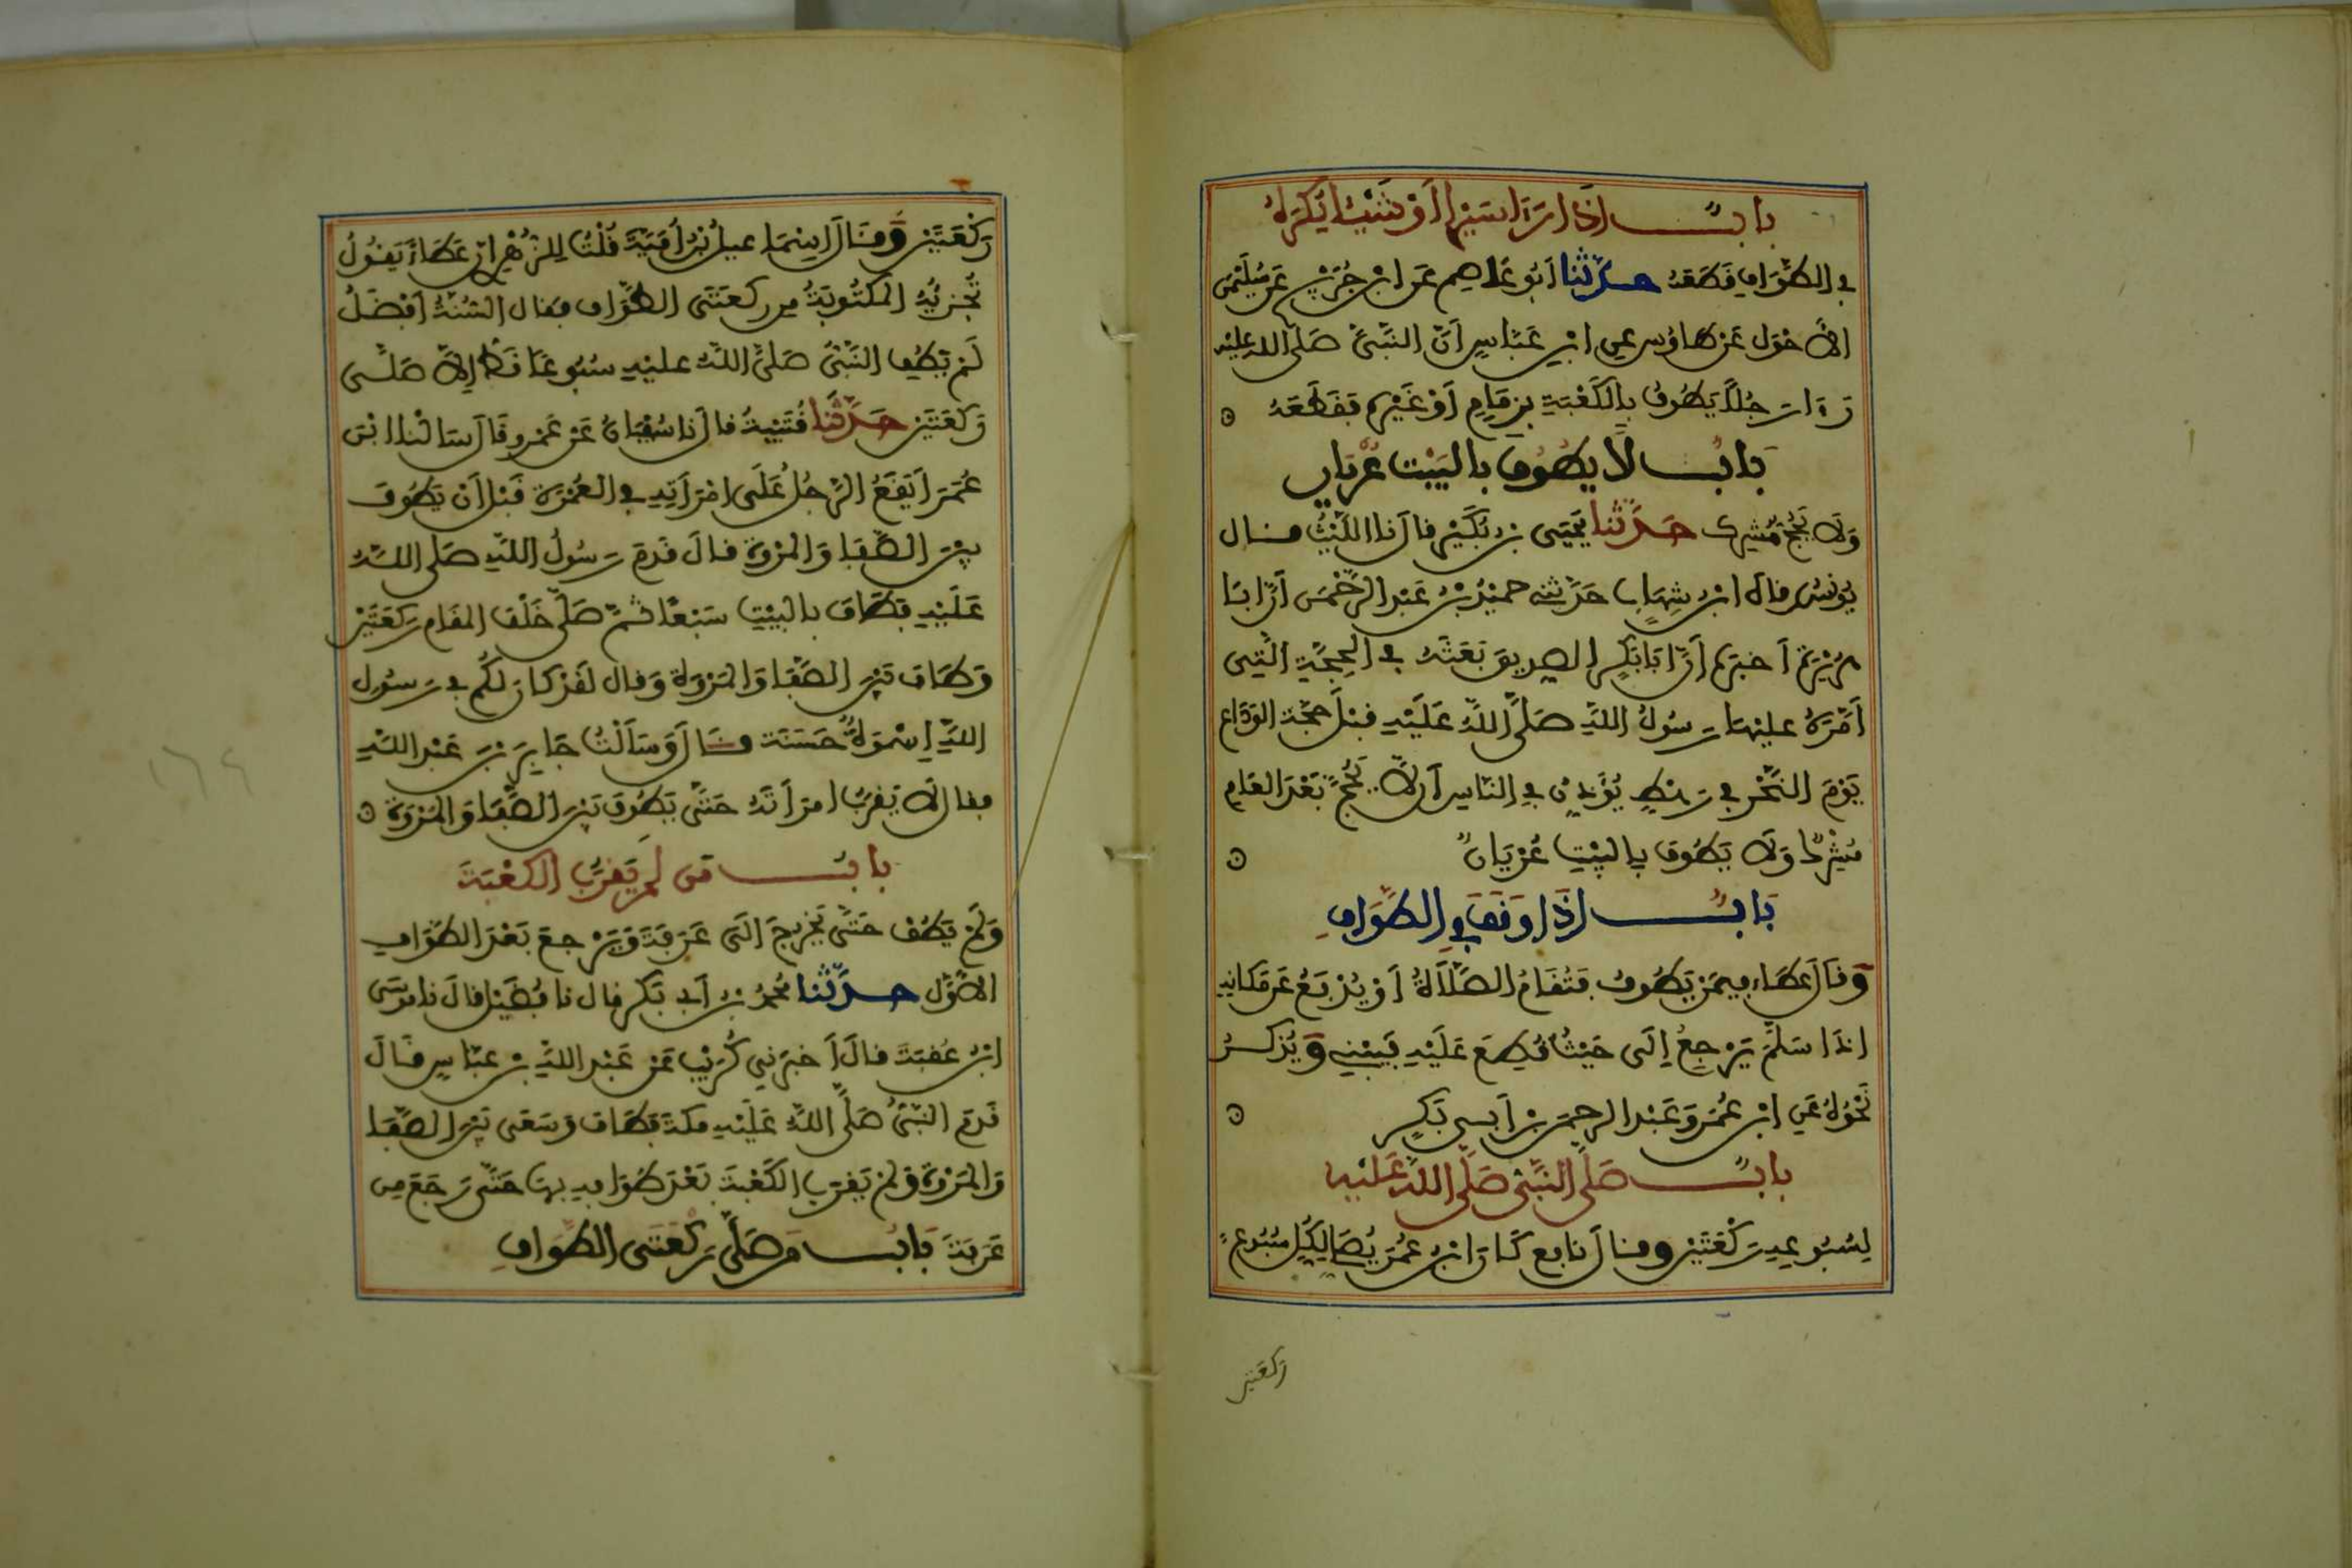 باب اذا رءا سيرا او شيئا يكره
في الطواف قطعه حدثنا ابو عاصم عن ابن جريج عن سليمن
الاحول عن طاوس عن ابن عباس ان النبي صلى الله عليه
رءا رجلا يطوف بالكعبة بزمام او غيره فقطعه
باب لا يطوف بالبيت عريان
ولا يحج مشرك حدثنا يحيى بن بكير قال نا الليث قال
يونس قال ابن شهاب حدثني حميد بن عبد الرحمن ان ابا
هريرة اخبره ان ابا بكر الصديق بعثه في الحجة التي
امره عليها رسول الله صلى الله عليه قبل حجة الوداع
يوم النحر في رهط يؤذن في الناس ان لا يحج بعد العام
مشرك ولا يطوف بالبيت عريان
باب اذا وقف في الطواف
وقال عطاء فيمن يطوف فتقام الصلاة او يدفع عن مكانه
اذا سلم يرجع الى حيث قطع عليه فيبني ويذكر
نحوه عن ابن عمر وعبد الرحمن بن ابي بكر
باب صلى النبي صلى الله عليه
لسبوعه ركعتين وقال نافع كان ابن عمر يصلي لكل سبوع
ركعتين
ركعتين وقال اسماعيل بن امية قلت للزهري ان عطاء يقول
تجزيه المكتوبة من ركعتي الطواف فقال السنة افضل
لم يطف النبي صلى الله عليه سبوعا قط الا صلى
ركعتين حدثنا قتيبة قال نا سفيان عن عمرو قال سالنا ابن
عمر ايقع الرجل على امراته في العمرة قبل ان يطوف
بين الصفا والمروة قال قدم رسول الله صلى الله
عليه فطاف بالبيت سبعا ثم صلى خلف المقام ركعتين
وطاف بين الصفا والمروة وقال لقد كان لكم في رسول
الله اسوة حسنة قال وسالت جابر بن عبد الله
فقال لا يقرب امراته حتى يطوف بين الصفا والمروة
باب من لم يقرب الكعبة
ولم يطف حتى يخرج الى عرفة ويرجع بعد الطواف
الاول حدثنا محمد بن ابي بكر قال نا فضيل قال نا موسى
ابن عقبة قال اخبرني كريب عن عبد الله بن عباس قال
قدم النبي صلى الله عليه مكة فطاف وسعى بين الصفا
والمروة ولم يقرب الكعبة بعد طوافه بها حتى رجع من
عرفة باب من صلى ركعتي الطواف